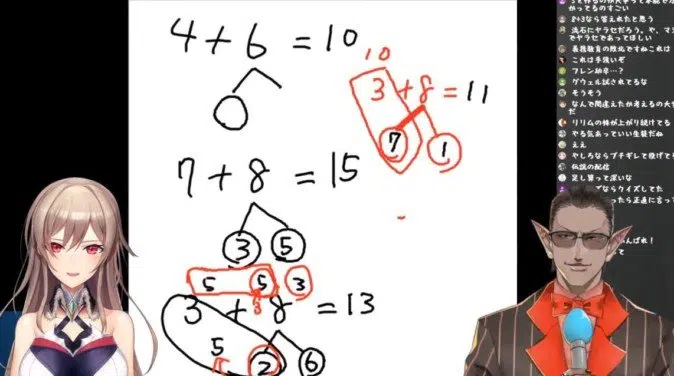 4+6=10
10
3+8=11
7
1
7+8=15
3
5
5
5
3
3+8=13
8
5
2
6
8+3なら答えれたと思う
流石にヤラセだろう。や、マジ
でヤラセであってほしい
義務教育の敗北ですねこれは
これは手強いぞ
フレン助辛…?
グウェル試されてるな
そうそう
なんで間違えたか考えるの大
だ
リリムの株が上がり続けてる
やる気あっていい生徒だね
ええ
やしろならブチギレて投げてそ
伝説の配信
足し算って深いな
ならクイズしてた
ったら正直に言っ
んばれ!
て